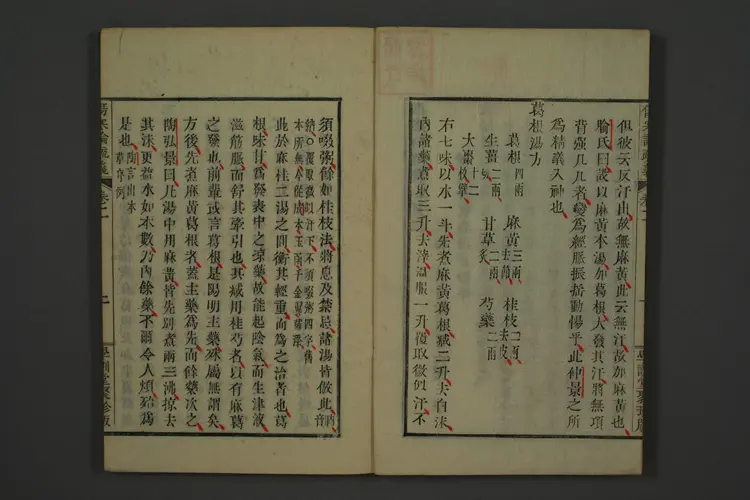 但彼云反汗出故無麻黃此云無汗故加麻黃也
喻氏曰設以麻黃本湯加葛根大發其汗將無項
背強几几者變為經脈振搖動惕乎此仲景之所
為精義入神也
葛根湯方
葛根四兩 麻黃三兩去節 桂枝二兩去皮
生薑三兩 甘草二兩 芍藥二兩
大棗十二枚擘
右七味以水一斗先煮麻黃葛根減二升去白沫
內諸藥煮取三升去滓溫服一升覆取微似汗不
須啜粥餘如桂枝法將息及禁忌諸湯皆倣此
此於麻桂二湯之間衡其輕重而為之治者也葛
根味甘氣涼藥故能起陰氣而生津液
滋筋脈而舒其牽引也其減用桂芍者以有麻葛
之發也前輩或言葛根是陽明主藥殊屬無謂矣
方後先煮麻黃葛根者蓋主藥為先而餘藥次之
陶弘景曰凡湯中用麻黃皆先別煮兩三沸掠去
其沫更益水如本數乃內餘藥不爾令人煩殆為
是也陶言出本草序例
傷寒論疏義 卷二